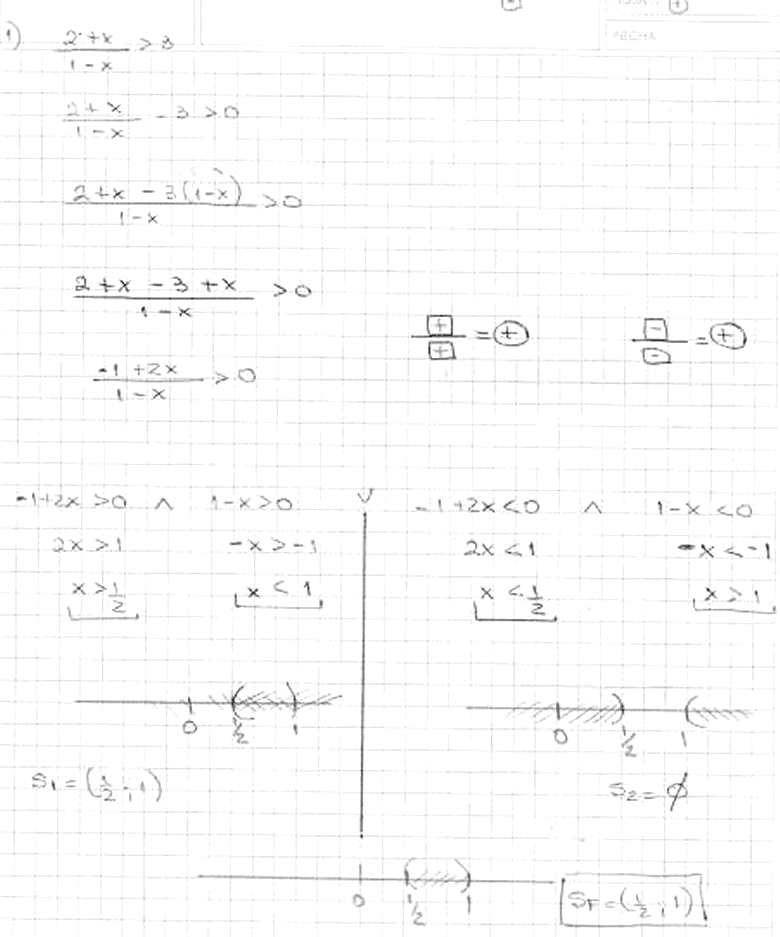 FECHA
1) (2+x)/(1-x) > 3
(2+x)/(1-x) - 3 > 0
(2+x-3(1-x))/(1-x) > 0
(2+x-3+x)/(1-x) > 0
+/+ = + -/- = +
(-1+2x)/(1-x) > 0
-1+2x>0 ∧ 1-x>0 ∨ -1+2x<0 ∧ 1-x<0
2x>1 -x>-1 2x<1 -x<-1
x>1/2 x<1 x<1/2 x>1
0 1/2 1 0 1/2 1
S1=(1/2;1) S2=∅
0 1/2 1 SF=(1/2;1)